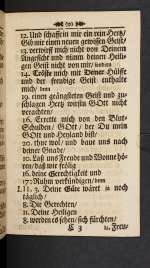 (o)
12. Und schaffe in mir ein rein Hertz/
GOtt mir einen neuen gewissen Geist/
13. verwirff mich nicht von Deinem
Angesicht und nimm deinen Heili-
gen Geist nicht von mir/
14. Tröste mich mit Deiner Hülffe
und der freudige Geist enthalte
mich/ denn
19. einen geängsteten Geist und zu-
schlagen Hertz wirstu GOtt nicht
verachten/
16. Errette mich von den Blut-
Schulden/ GOtt/ der Du mein
GOtt und Heyland bist/
20. thue wol/ und baue uns nach
deiner Gnade/
10. Laß uns Freude und Wonne hö-
ren/ daß wir frölig
16. deine Gerechtigkeit und
17. Ruhm verkündigen/ denn
LII. 3. Deine Güte währet ja noch
täglich/
8. Die Gerechten/
11. Deine Heiligen
8. werden es sehen/ sich fürchten/
E 3